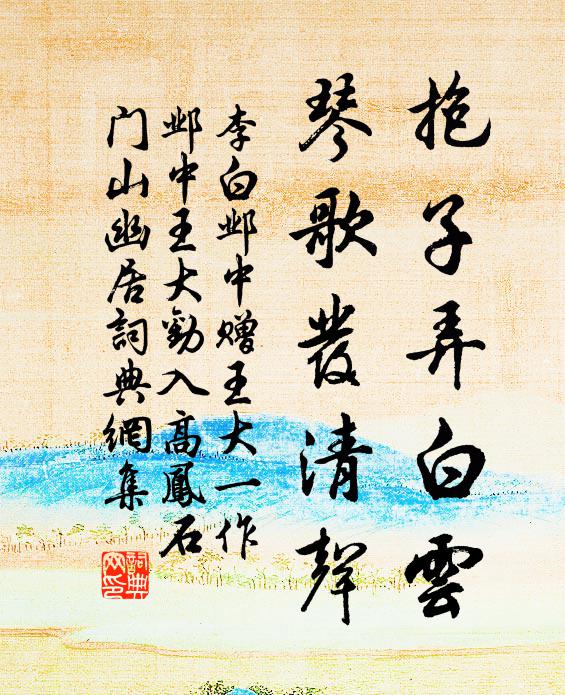 抱子弄白雲
琴歌發清聲
李白邺中赠王大一作
邺中王大勸入高鳳石
门山幽居詞典網集
詞典
网印